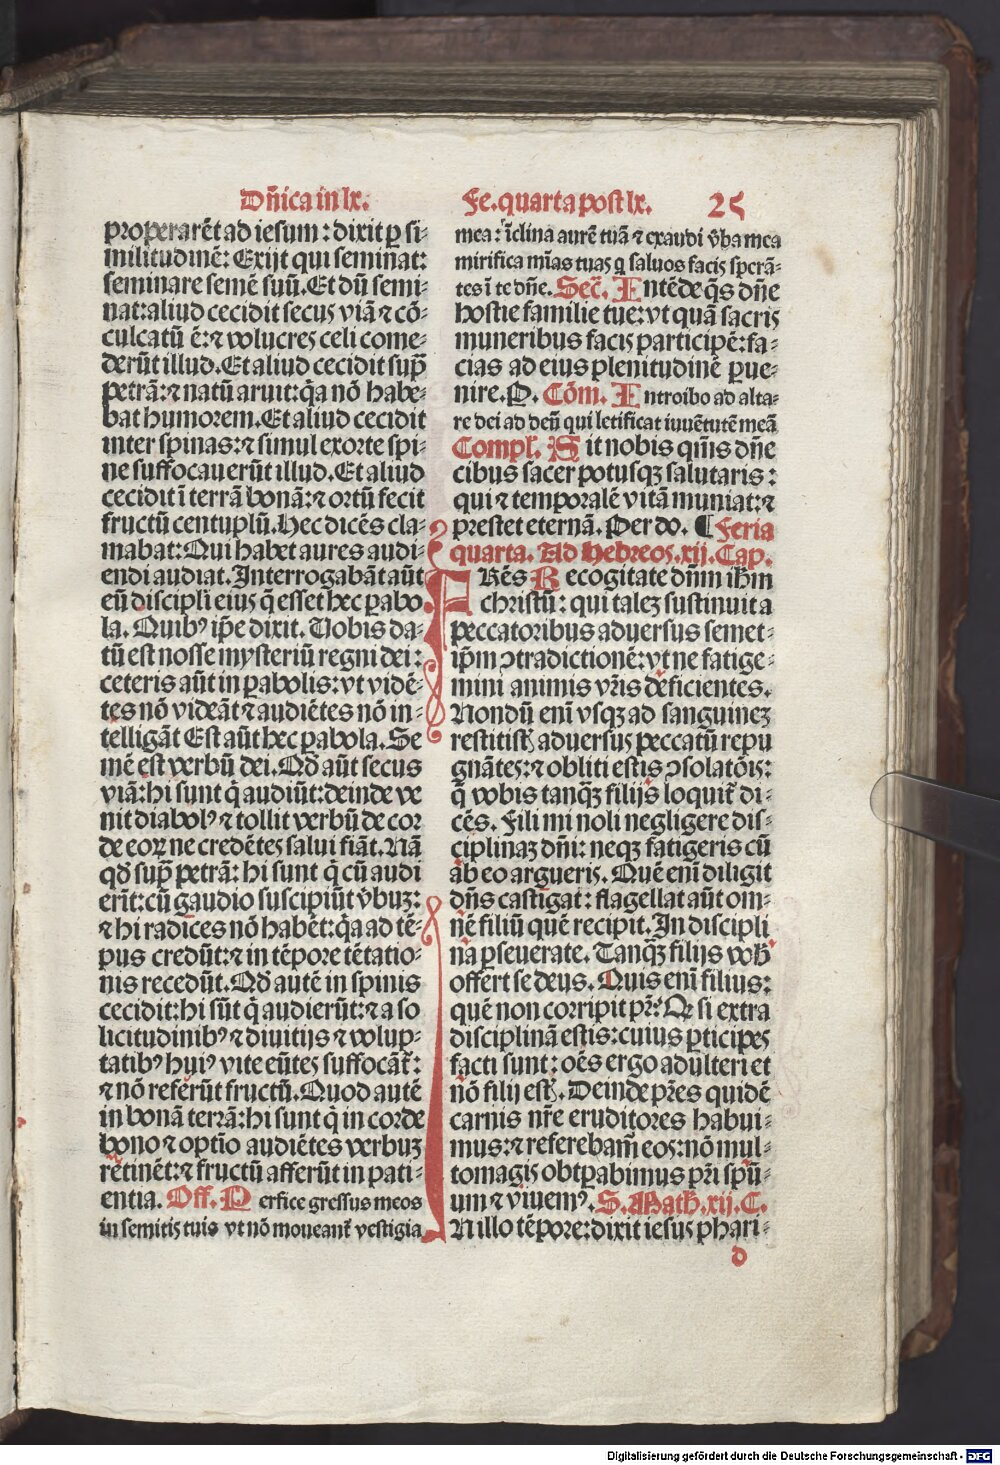 Dn̄ica in lx.
properarēt ad iesum : dixit ꝑ si-
militudinē: Exijt qui seminat:
seminare semē suū. Et dū semi-
nat: aliud cecidit secus viā ⁊ cō-
culcatū ē: ⁊ volucres celi come-
derūt illud. Et aliud cecidit sup̄
petrā: ⁊ natū aruit: q̄a nō habe-
bat humorem. Et aliud cecidit
inter spinas: ⁊ simul exorte spi-
ne suffocauerūt illud. Et aliud
cecidit ī terrā bonā: ⁊ ortū fecit
fructū centuplū. Hec dicēs cla-
mabat: Qui habet aures audi-
endi audiat. Interrogabāt aūt
eū discipli eius q̄ esset hec ꝑabo
la. Quibꝰ ip̄e dixit. Uobis da-
tū est nosse mysteriū regni dei :
ceteris aūt in ꝑabolis: vt vidē-
tes nō videāt ⁊ audiētes nō in-
telligāt Est aūt hec ꝑabola. Se
mē est verbū dei. Qd̄ aūt secus
viā: hi sunt q̄ audiūt: deinde ve
nit diabolꝰ ⁊ tollit verbū de cor
de eoꝝ ne credētes salui fiāt. Nā
qd̄ sup̄ petrā: hi sunt q̄ cū audi
erīt: cū gaudio suscipiūt v̄buꝫ:
⁊ hi radices nō habēt: q̄a ad tē-
pus credūt: ⁊ in tēpore tētatio-
nis recedūt. Qd̄ autē in spinis
cecidit: hi sūt q̄ audierūt: ⁊ a so
licitudinibꝰ ⁊ diuitijs ⁊ volup-
tatibꝰ huiꝰ vite eūtes suffocāt̄:
⁊ nō referūt fructū. Quod autē
in bonā terrā: hi sunt q̄ in corde
bono ⁊ optīo audiētes verbuꝫ
retinēt: ⁊ fructū afferūt in pati-
entia. Off. P erfice gressus meos
in semitis tuis vt nō moueant̄ vestigia
Fe. quarta post lx. 25
mea : īclina aurē tuā ⁊ exaudi v̄ba mea
mirifica mīas tuas q saluos facis sperā-
tes ī te dn̄e. Sec̄. I ntēde q̄s dn̄e
hostie familie tue: vt quā sacris
muneribus facis participē: fa-
cias ad eius plenitudinē ꝑue-
nire. P. Cōm. I ntroibo ad alta-
re dei ad deū qui letificat iuuētutē meā
Compl. S it nobis qm̄s dn̄e
cibus sacer potusqꝫ salutaris :
qui ⁊ temporalē vitā muniat: ⁊
prestet eternā. Per do. ¶ Feria
quarta. Ad Hebreos. xij. Cap.
FRēs R ecogitate dn̄m ih̄m
christū : qui taleꝫ sustinuit a
peccatoribus aduersus semet-
ip̄m ꝯtradictionē: vt ne fatige-
mini animis vr̄is deficientes.
Nondū enī vsqꝫ ad sanguineꝫ
restitist̄ aduersus peccatū repu
gnātes: ⁊ obliti estis ꝯsolatōis:
q̄ vobis tanq̄ꝫ filijs loquit̄ di-
cēs. Fili mi noli negligere dis-
ciplinaꝫ dn̄i: neqꝫ fatigeris cū
ab eo argueris. Quē enī diligit
dn̄s castigat: flagellat aūt om-
nē filiū quē recipit. In discipli
na ꝑseuerate. Tanq̄ꝫ filijs vob̄
offert se deus. Quis enī filius:
quē non corripit pr̄? Qꝫ si extra
disciplinā estis: cuius ꝑticipes
facti sunt: oēs ergo adulteri et
nō filij est̄. Deinde pr̄es quidē
carnis nr̄e eruditores habui-
mus: ⁊ referebam̄ eos: nō mul-
tomagis obtꝑabimus pr̄i spū-
um ⁊ viuemꝰ. S. Math. xij. C.
IN illo tēpore: dixit iesus phari-
d
Digitalisierung gefördert durch die Deutsche Forschungsgemeinschaft - DFG